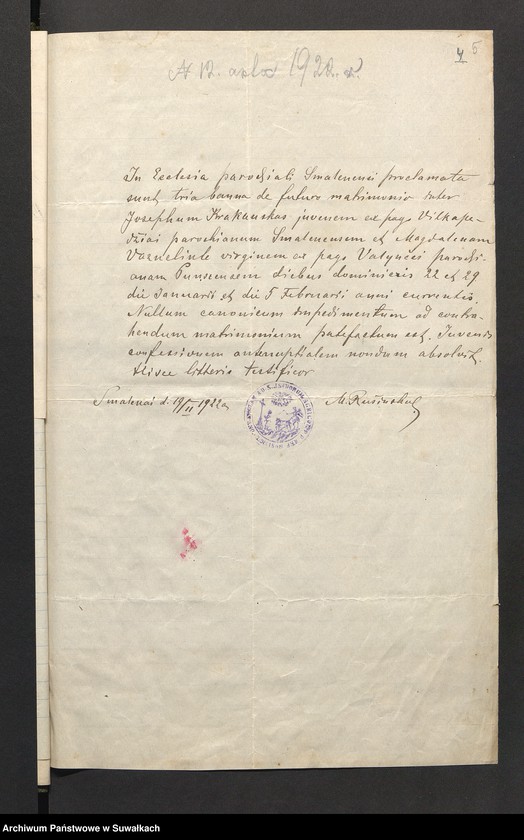 4 5
№ 12. 1922. r.
In Ecclesia parochiali Smalenensi proclamata
sunt tria banna de futuro matrimonio inter
Josephum Krakauskas juvenem ex pago Vilkape-
džiai parochianum Smalenensem et Magdalenam
Vaznelinte virginem ex pago Valynčai parochi-
anam Punscensem diebus dominicis 22 et 29
die Januarii et die 5 Februarii anni currentis.
Nullum canonicum impedimentum ad contra-
hendum matrimonium patefactum est. Juvenis
confessionem antenuptialem nondum absolvit.
Hisce litteris testificor
Smalenai d. 19/II 1922 a
Archiwum Państwowe w Suwałkach